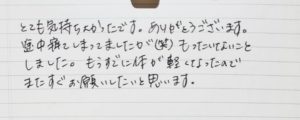 とても気持ちよかったです。ありがとうございます。
途中寝てしまってましたが(笑)もったいないこと
しました。もうすでに体が軽くなったので
またすぐお願いしたいと思います。